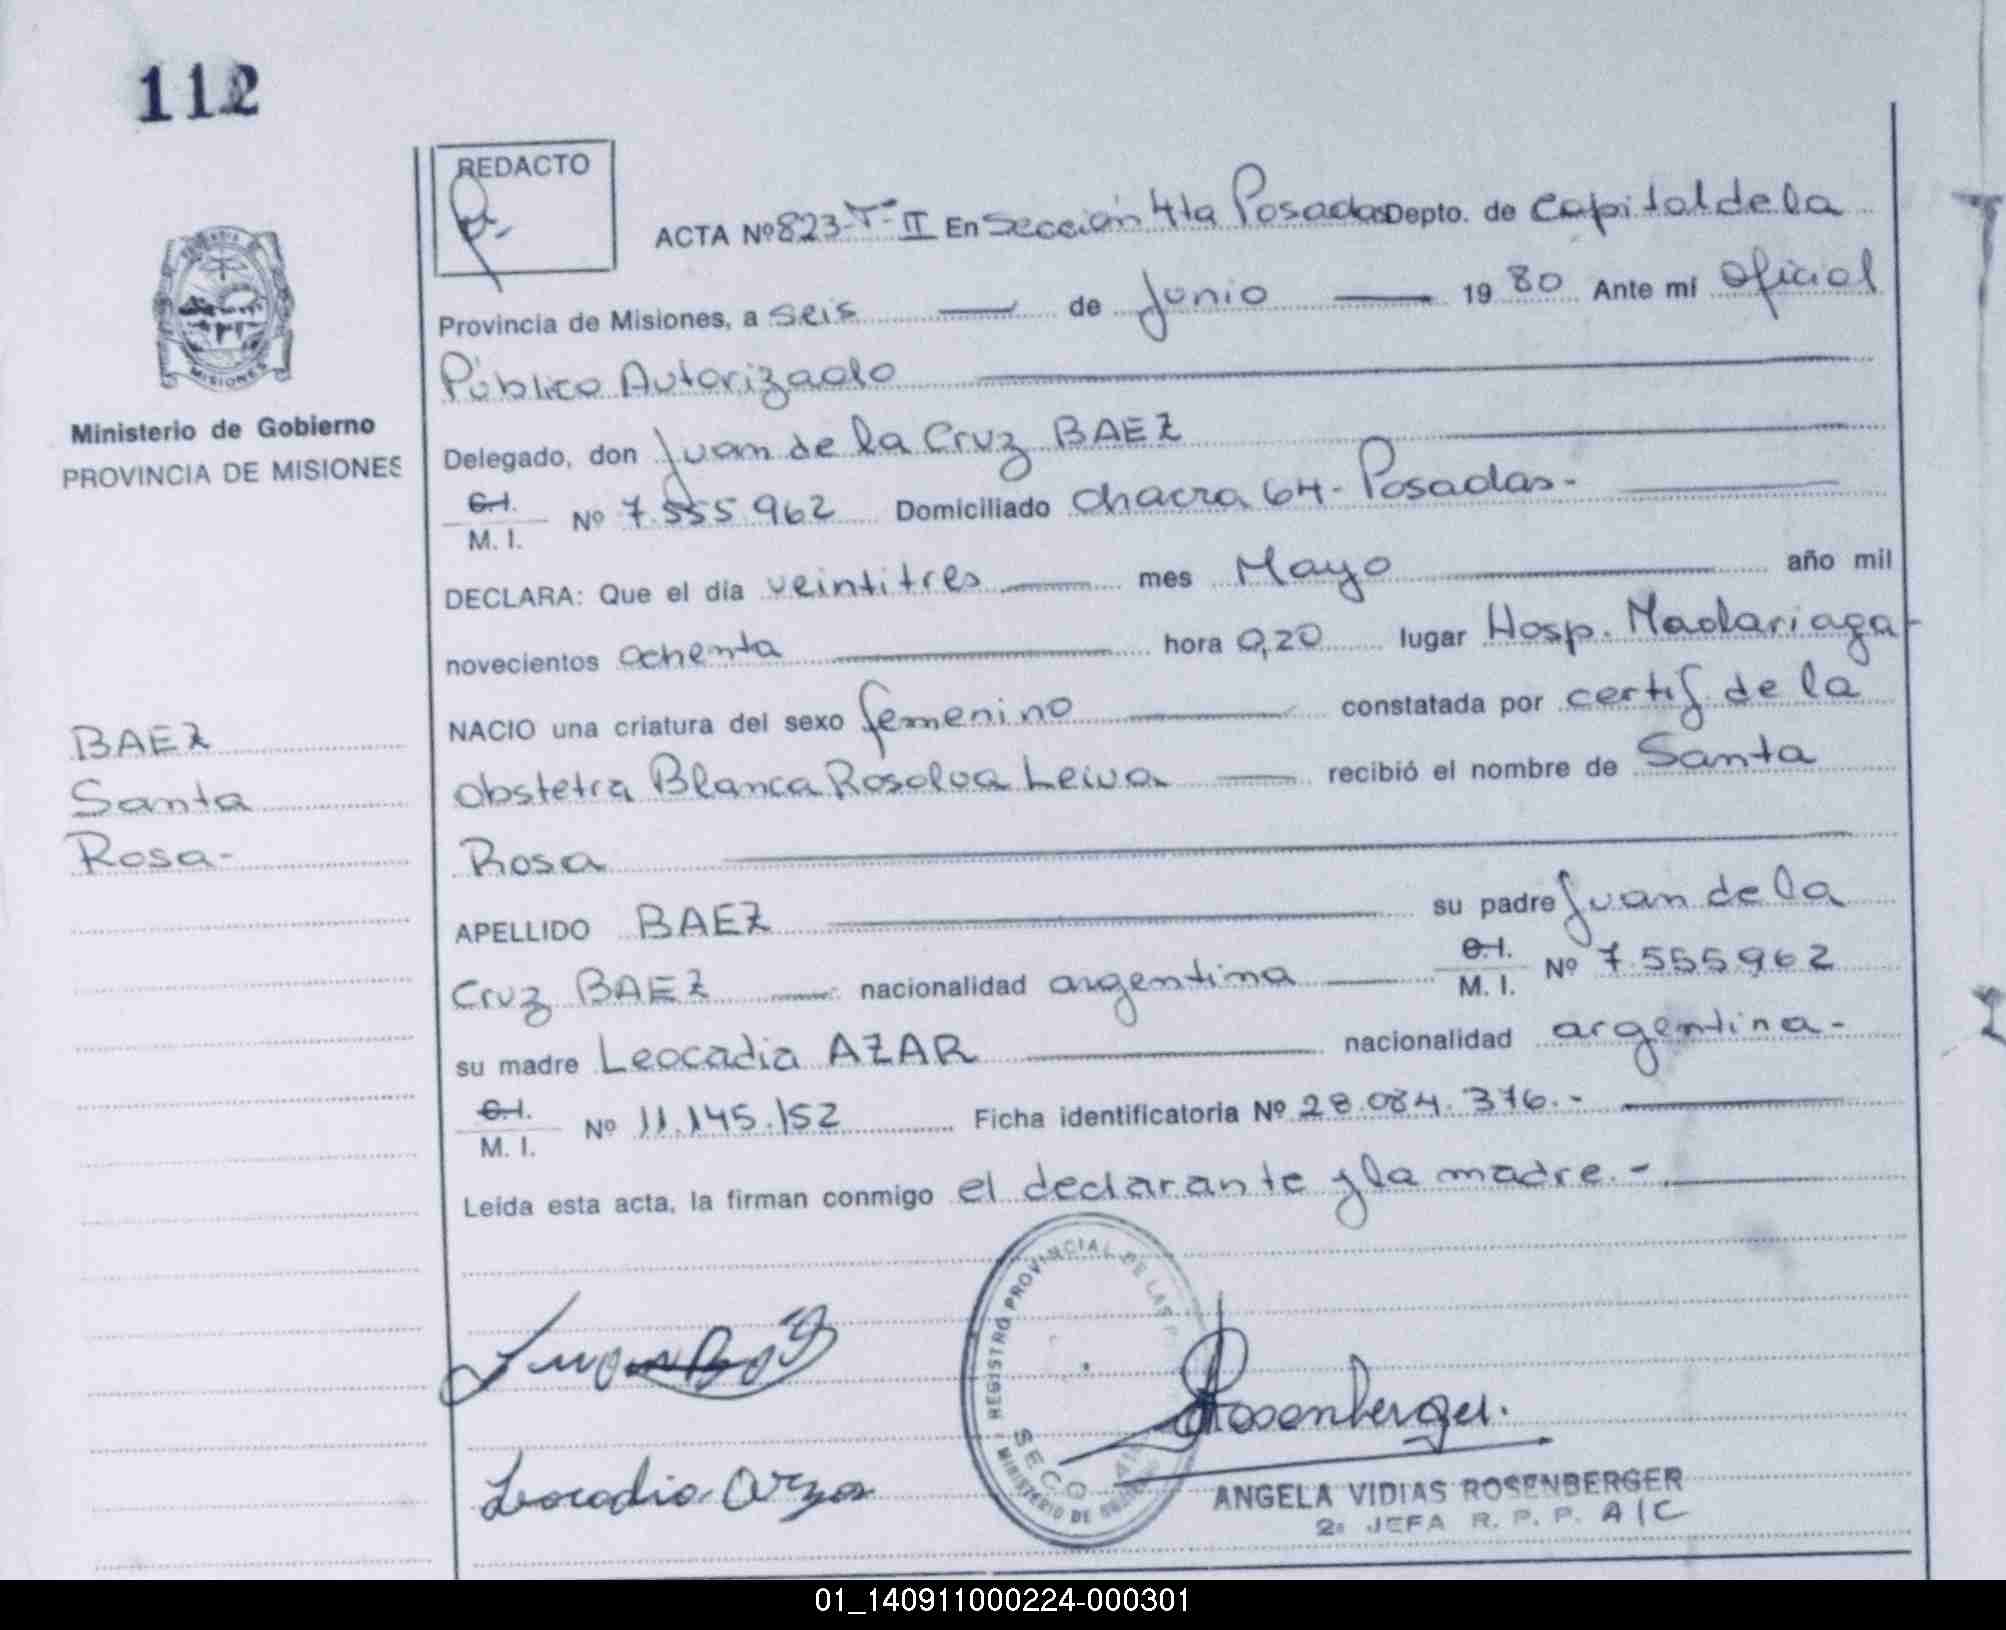 112
REDACTO
ACTA Nº 823-Tº II En Sección 4ta Posadas Depto. de Capital de la
Provincia de Misiones, a seis de Junio 19 80 Ante mí Oficial
Público Autorizado
Ministerio de Gobierno
PROVINCIA DE MISIONES
Delegado, don Juan de la Cruz BAEZ
C.I.
M. I. Nº 7.555962 Domiciliado chacra 64- Posadas-
DECLARA: Que el día veintitres mes Mayo año mil
novecientos ochenta hora 0,20 lugar Hosp. Madariaga-
NACIO una criatura del sexo femenino constatada por certif. de la
BAEZ
Santa
Rosa-
obstetra Blanca Rosalva Leiva recibió el nombre de Santa
Rosa
APELLIDO BAEZ su padre Juan de la
Cruz BAEZ nacionalidad argentina C.I.
M. I. Nº 7.555962
su madre Leocadia AZAR nacionalidad argentina-
C.I.
M. I. Nº 11.145.152 Ficha identificatoria Nº 28.084.376.-
Leída esta acta, la firman conmigo el declarante y la madre.-
REGISTRO PROVINCIAL DE LAS
MINISTERIO DE
Rosenberger.
ANGELA VIDIAS ROSENBERGER
2ª JEFA R. P. P. A/C
MISIONES
01_140911000224-000301